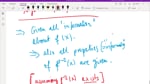 ⇒ Given all "information"
about f(x).
⇒ also all properties (information)
of f⁻¹(x) are given.
[Assuming f⁻¹(x) exists]